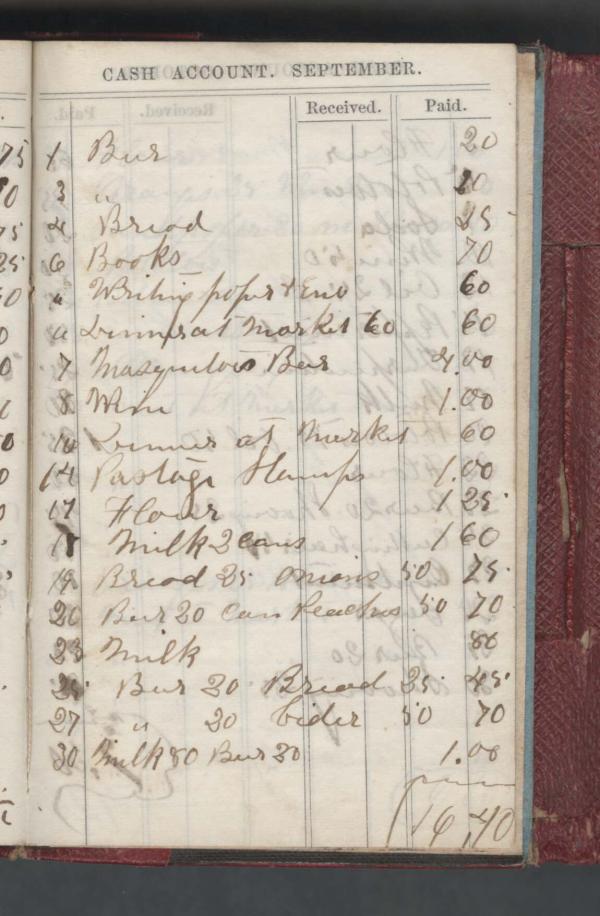 CASH ACCOUNT. SEPTEMBER.
Received. Paid.
1 Beer 20
3 " 20
4 Bread 25
6 Books 70
" Writing paper & Env 60
" Dinner at Market 60 60
7 Masquitoes Bar 4.00
8 Wine 1.00
10 Dinner at Market 60
14 Postage Stamps 1.00
17 Flour 1 25
18 Milk 2 cans 1 60
19 Bread 25 Onions 50 75
20 Beer 20 Can Peaches 50 70
23 Milk 80
25 Beer 20 Bread 25 45
27 " 20 Cider 50 70
30 Milk 80 Beer 20 1.00
16,40